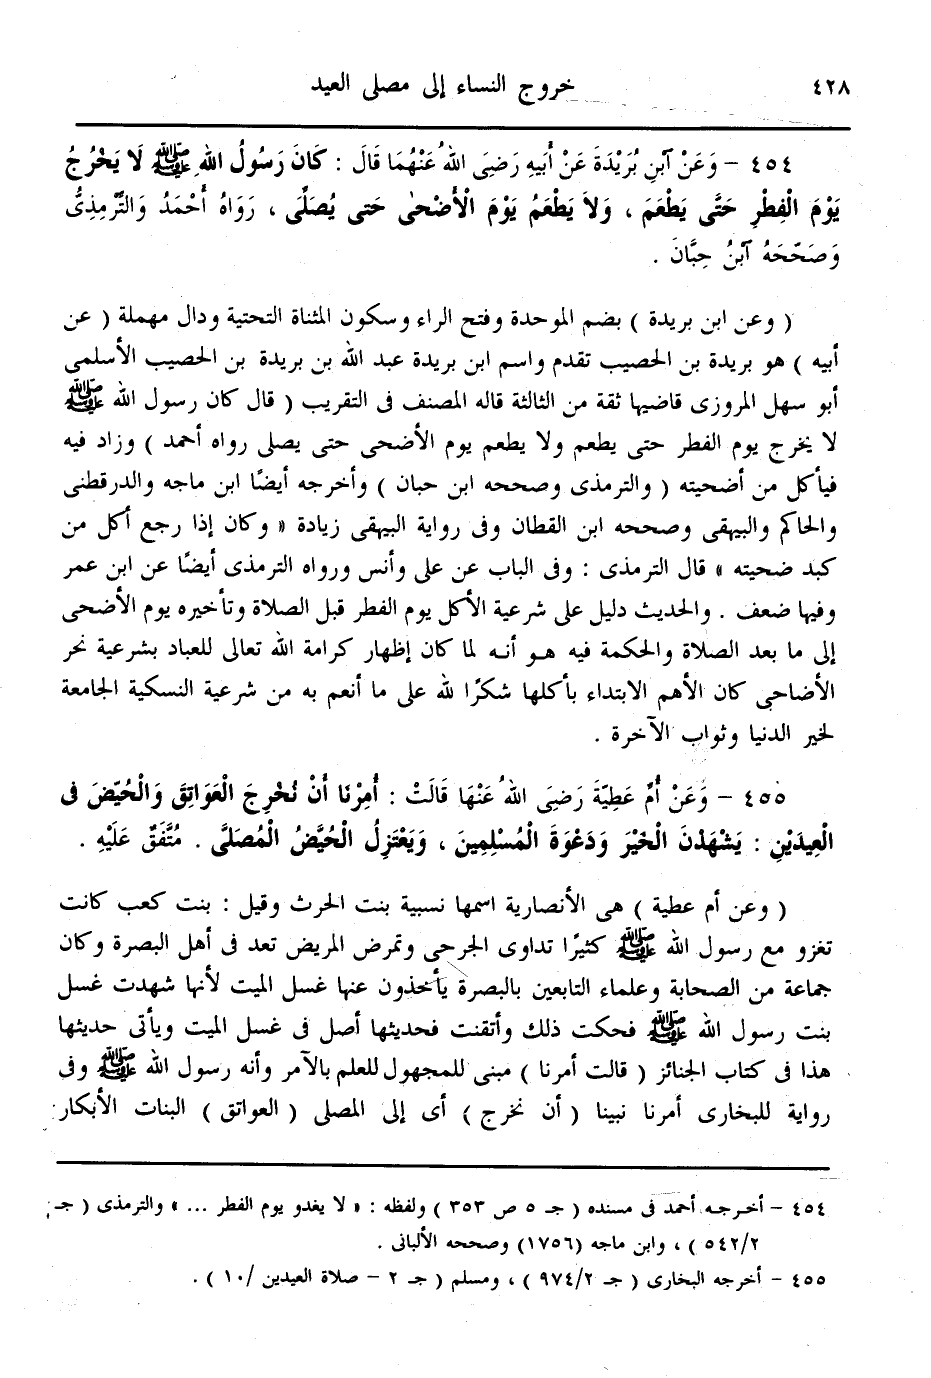 ٤٢٨ خروج النساء إلى مصلى العيد
٤٥٤ – وَعَنْ آبْنِ بُرَيْدَةَ عَنْ أَبِيهِ رَضِىَ اللهُ عَنْهُمَا قَالَ : كَانَ رَسُولُ اللهِ ﷺ لَا يَخْرُجُ
يَوْمَ الْفِطْرِ حَتَّى يَطْعَمَ ، وَلاَ يَطْعَمُ يَوْمَ الْأَضْحٰى حَتى يُصَلِّى ، رَوَاهُ أَحْمَدُ وَالتِّرْمِذِىُّ
وَصَحّحَهُ آبْنُ حِبَّانَ .
( وعن ابن بريدة ) بضم الموحدة وفتح الراء وسكون المثناة التحتية ودال مهملة ( عن
أبيه ) هو بريدة بن الحصيب تقدم واسم ابن بريدة عبد الله بن بريدة بن الحصيب الأسلمى
أبو سهل المروزى قاضيها ثقة من الثالثة قاله المصنف فى التقريب ( قال كان رسول الله ﷺ
لا يخرج يوم الفطر حتى يطعم ولا يطعم يوم الأضحى حتى يصلى رواه أحمد ) وزاد فيه
فيأكل من أضحيته ( والترمذى وصححه ابن حبان ) وأخرجه أيضًا ابن ماجه والدرقطنى
والحاكم والبيهقى وصححه ابن القطان وفى رواية البيهقى زيادة « وكان إذا رجع أكل من
كبد ضحيته » قال الترمذى : وفى الباب عن على وأنس ورواه الترمذى أيضًا عن ابن عمر
وفيها ضعف . والحديث دليل على شرعية الأكل يوم الفطر قبل الصلاة وتأخيره يوم الأضحى
إلى ما بعد الصلاة والحكمة فيه هو أنه لما كان إظهار كرامة الله تعالى للعباد بشرعية نحر
الأضاحى كان الأهم الابتداء بأكلها شكرًا لله على ما أنعم به من شرعية النسكية الجامعة
لخير الدنيا وثواب الآخرة .
٤٥٥ – وَعَنْ أُمِّ عَطِيَّةَ رَضِىَ اللهُ عَنْهَا قَالَتْ : أُمِرْنَا أَنْ نُخْرِجَ الْعَوَاتِقَ وَالْحُيّضَ فى
الْعِيدَيْنِ : يَشْهَدْنَ الْخَيْرَ وَدَعْوَةَ الْمُسْلِمِينَ ، وَيَعْتَزِلُ الْحُيَّضُ الْمُصَلَّى . مُتَّفَقٌ عَلَيْهِ .
( وعن أم عطية ) هى الأنصارية اسمها نسيبة بنت الحرث وقيل : بنت كعب كانت
تغزو مع رسول الله ﷺ كثيرًا تداوى الجرحى وتمرض المريض تعد فى أهل البصرة وكان
جماعة من الصحابة وعلماء التابعين بالبصرة يأخذون عنها غسل الميت لأنها شهدت غسل
بنت رسول الله ﷺ فحكت ذلك وأتقنت فحديثها أصل فى غسل الميت ويأتى حديثها
هذا فى كتاب الجنائز ( قالت أمرنا ) مبنى للمجهول للعلم بالآمر وأنه رسول الله ﷺ وفى
رواية للبخارى أمرنا نبينا ( أن نخرج ) أى إلى المصلى ( العواتق ) البنات الأبكار
٤٥٤ – أخرجه أحمد فى مسنده ( جـ ٥ ص ٣٥٣ ) ولفظه : « لا يغدو يوم الفطر ... » والترمذى ( جـ
٥٤٢/٢ ) ، وابن ماجه (١٧٥٦) وصححه الألبانى .
٤٥٥ – أخرجه البخارى ( جـ ٩٧٤/٢ ) ، ومسلم ( جـ ٢ – صلاة العيدين /١٠ ) .